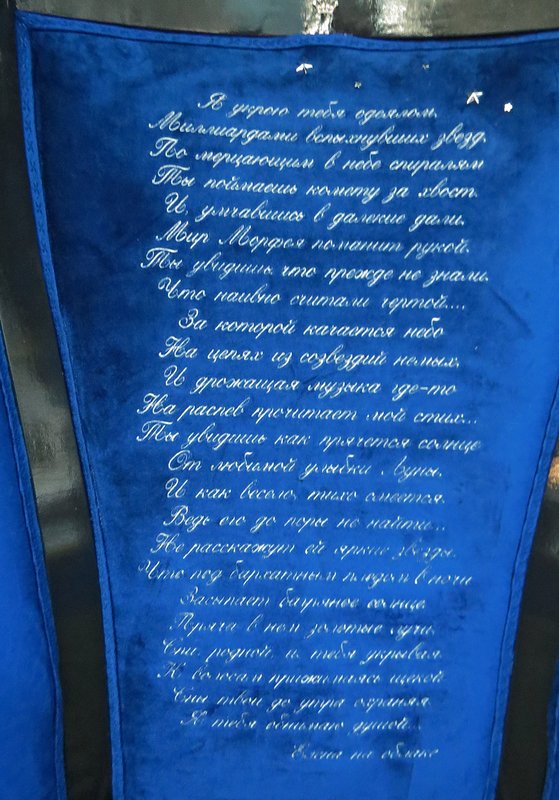 Я укрою тебя одеялом.
Миллиардами вспыхнувших звезд.
По мерцающим в небе спиралям
Ты поймаешь комету за хвост.
И, умчавшись в далекие дали,
Мир Морфея поманит рукой.
Ты увидишь, что прежде не знали,
Что наивно считали чертой....
За которой качается небо
На цепях из созвездий немых.
И дрожащая музыка где-то
На распев прочитает мой стих...
Ты увидишь как прячется солнце
От любимой улыбки Луны.
И как весело, тихо смеется.
Ведь его до поры не найти...
Не расскажут ей яркие звезды.
Что под бархатным пледом в ночи
Засыпает багряное солнце.
Пряча в нем золотые лучи.
Спи, родной, и, тебя укрывая
К волосам прижимаясь щекой
Сны твои до утра охраняя
Я тебя обнимаю душой...
Елена на облаке